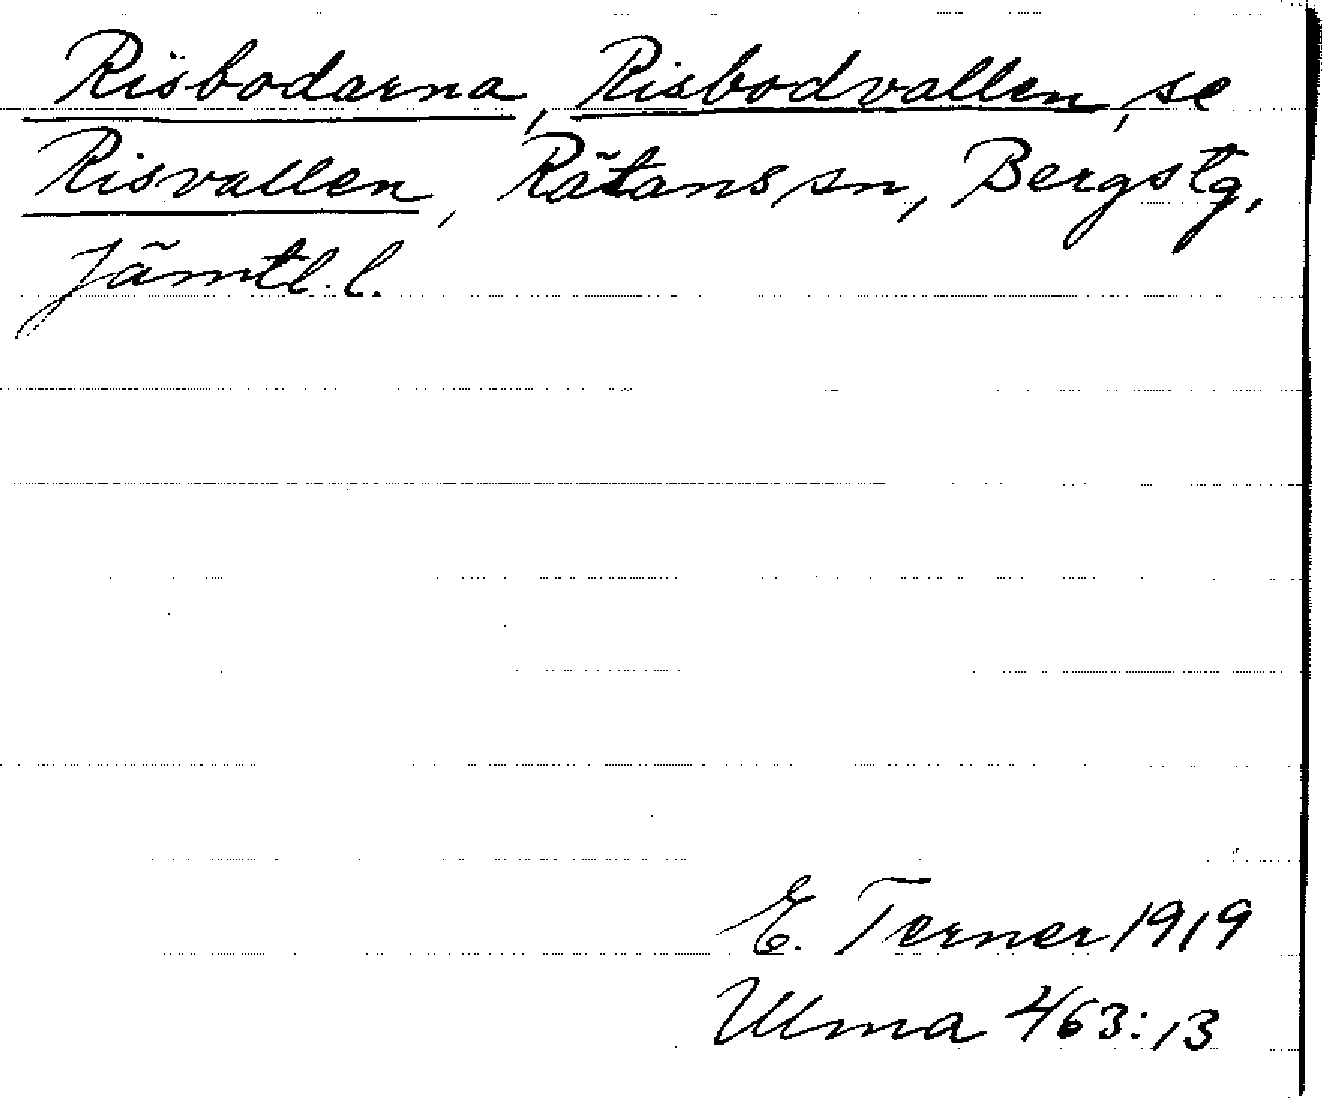 Risbodarna, Risbodvallen, se
Risvallen, Rätans sn, Bergs tg,
Jämtl. l.
E. Terner 1919
Ulma 463:13